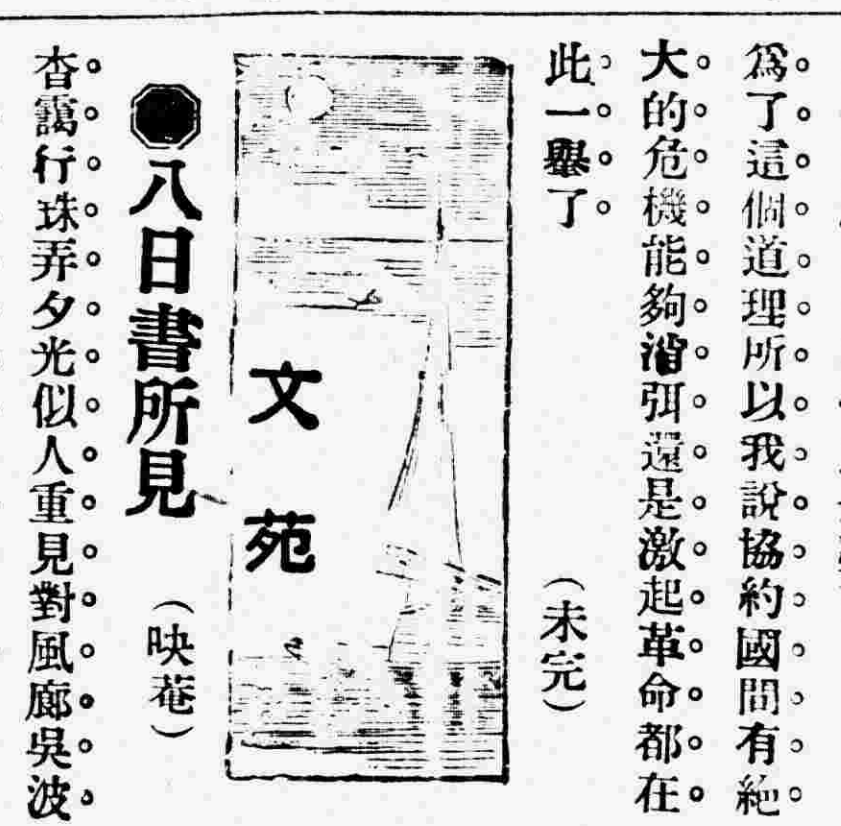 爲了這個道理所以我說協約國間有絕
大的危機能夠消弭還是激起革命都在
此一舉了
（未完）
文苑
八日書所見
（映菴）
杳靄行珠弄夕光似人重見對風廊吳波